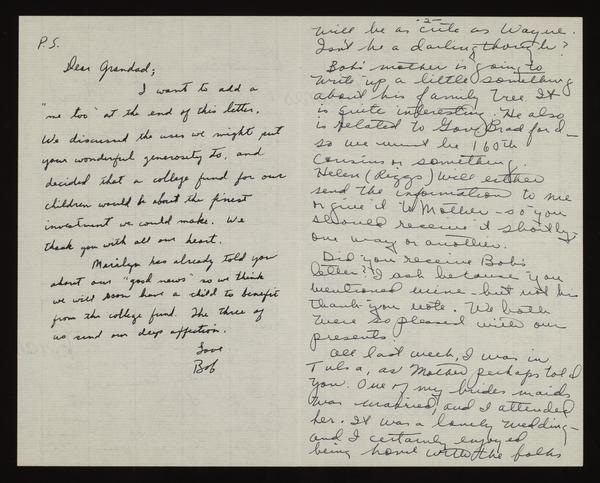 P.S.
Dear Grandad;
I want to add a
"me too" at the end of this letter.
We discussed the uses we might put
your wonderful generosity to, and
decided that a college fund for our
children would be about the finest
investment we could make. We
thank you with all our heart.
Marilyn has already told you
about our "good news" so we think
we will soon have a child to benefit
from the college fund. The three of
us send our deep affection.
Love
Bob
-2-
will be as cute as Wayne.
Isn't he a darling though?
Bob's mother is going to
write up a little something
about his family tree. It
is quite interesting. He also
is related to Gov. Bradford -
so we must be 160th
cousins or something.
Helen (Riggs) will either
send the information to me
or give it to Mother - so you
should receive it shortly -
one way or another.
Did you receive Bob's
letter? I ask because you
mentioned mine - but not his
thank-you note. We both
were so pleased with our
presents.
All last week, I was in
Tulsa, as Mother perhaps told
you. One of my brides maids
was married, and I attended
her. It was a lovely wedding -
and I certainly enjoyed
being home with the folks